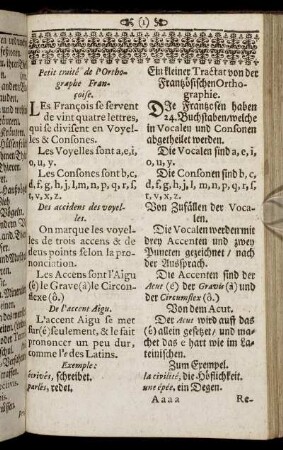 (1)
Petit traité de l'Ortho-
graphe Fran-
çoise.
LEs François se servent
de vint quatre lettres,
qui se divisent en Voyel-
les & Consones.
Les Voyelles sont a, e, i,
o, u, y.
Les Consones sont b, c,
d, f, g, h, j, l, m, n, p, q, r, s,
t, v, x, z.
Des accidens des voyel-
les.
On marque les voyel-
les de trois accens & de
deux points selon la pro-
nonciation.
Les Accens sont l'Aigu
(é) le Grave (à) le Circon-
flexe (ô.)
De l'accent Aigu.
L'accent Aigu se met
sur (é) seulement, & le fait
prononcer un peu dur,
comme l'e des Latins.
Exemple:
écrivés, schreibet.
parlés, redet.
Ein kleiner Tractat von der
Französischen Ortho-
graphie.
DJe Franzosen haben
24. Buchstaben/welche
in Vocalen und Consonen
abgetheilet werden.
Die Vocalen sind a, e, i,
o, u, y.
Die Consonen sind b, c,
d, f, g, h, j, l, m, n, p, q, r,
s, t, v, x, z.
Von Zufällen der Voca-
len.
Die Vocalen werden mit
drey Accenten und zwey
Puncten gezeichnet / nach
der Aussprach.
Die Accenten sind der
Acut (é) der Gravis (à) und
der Circumflex (ô.)
Von dem Acut.
Der Acut wird auf das
(é) allein gesetzet / und ma-
chet das e hart wie im La-
teinischen.
Zum Exempel.
la civilité, die Höflichkeit.
une épée, ein Degen.
Aaaa
Re-